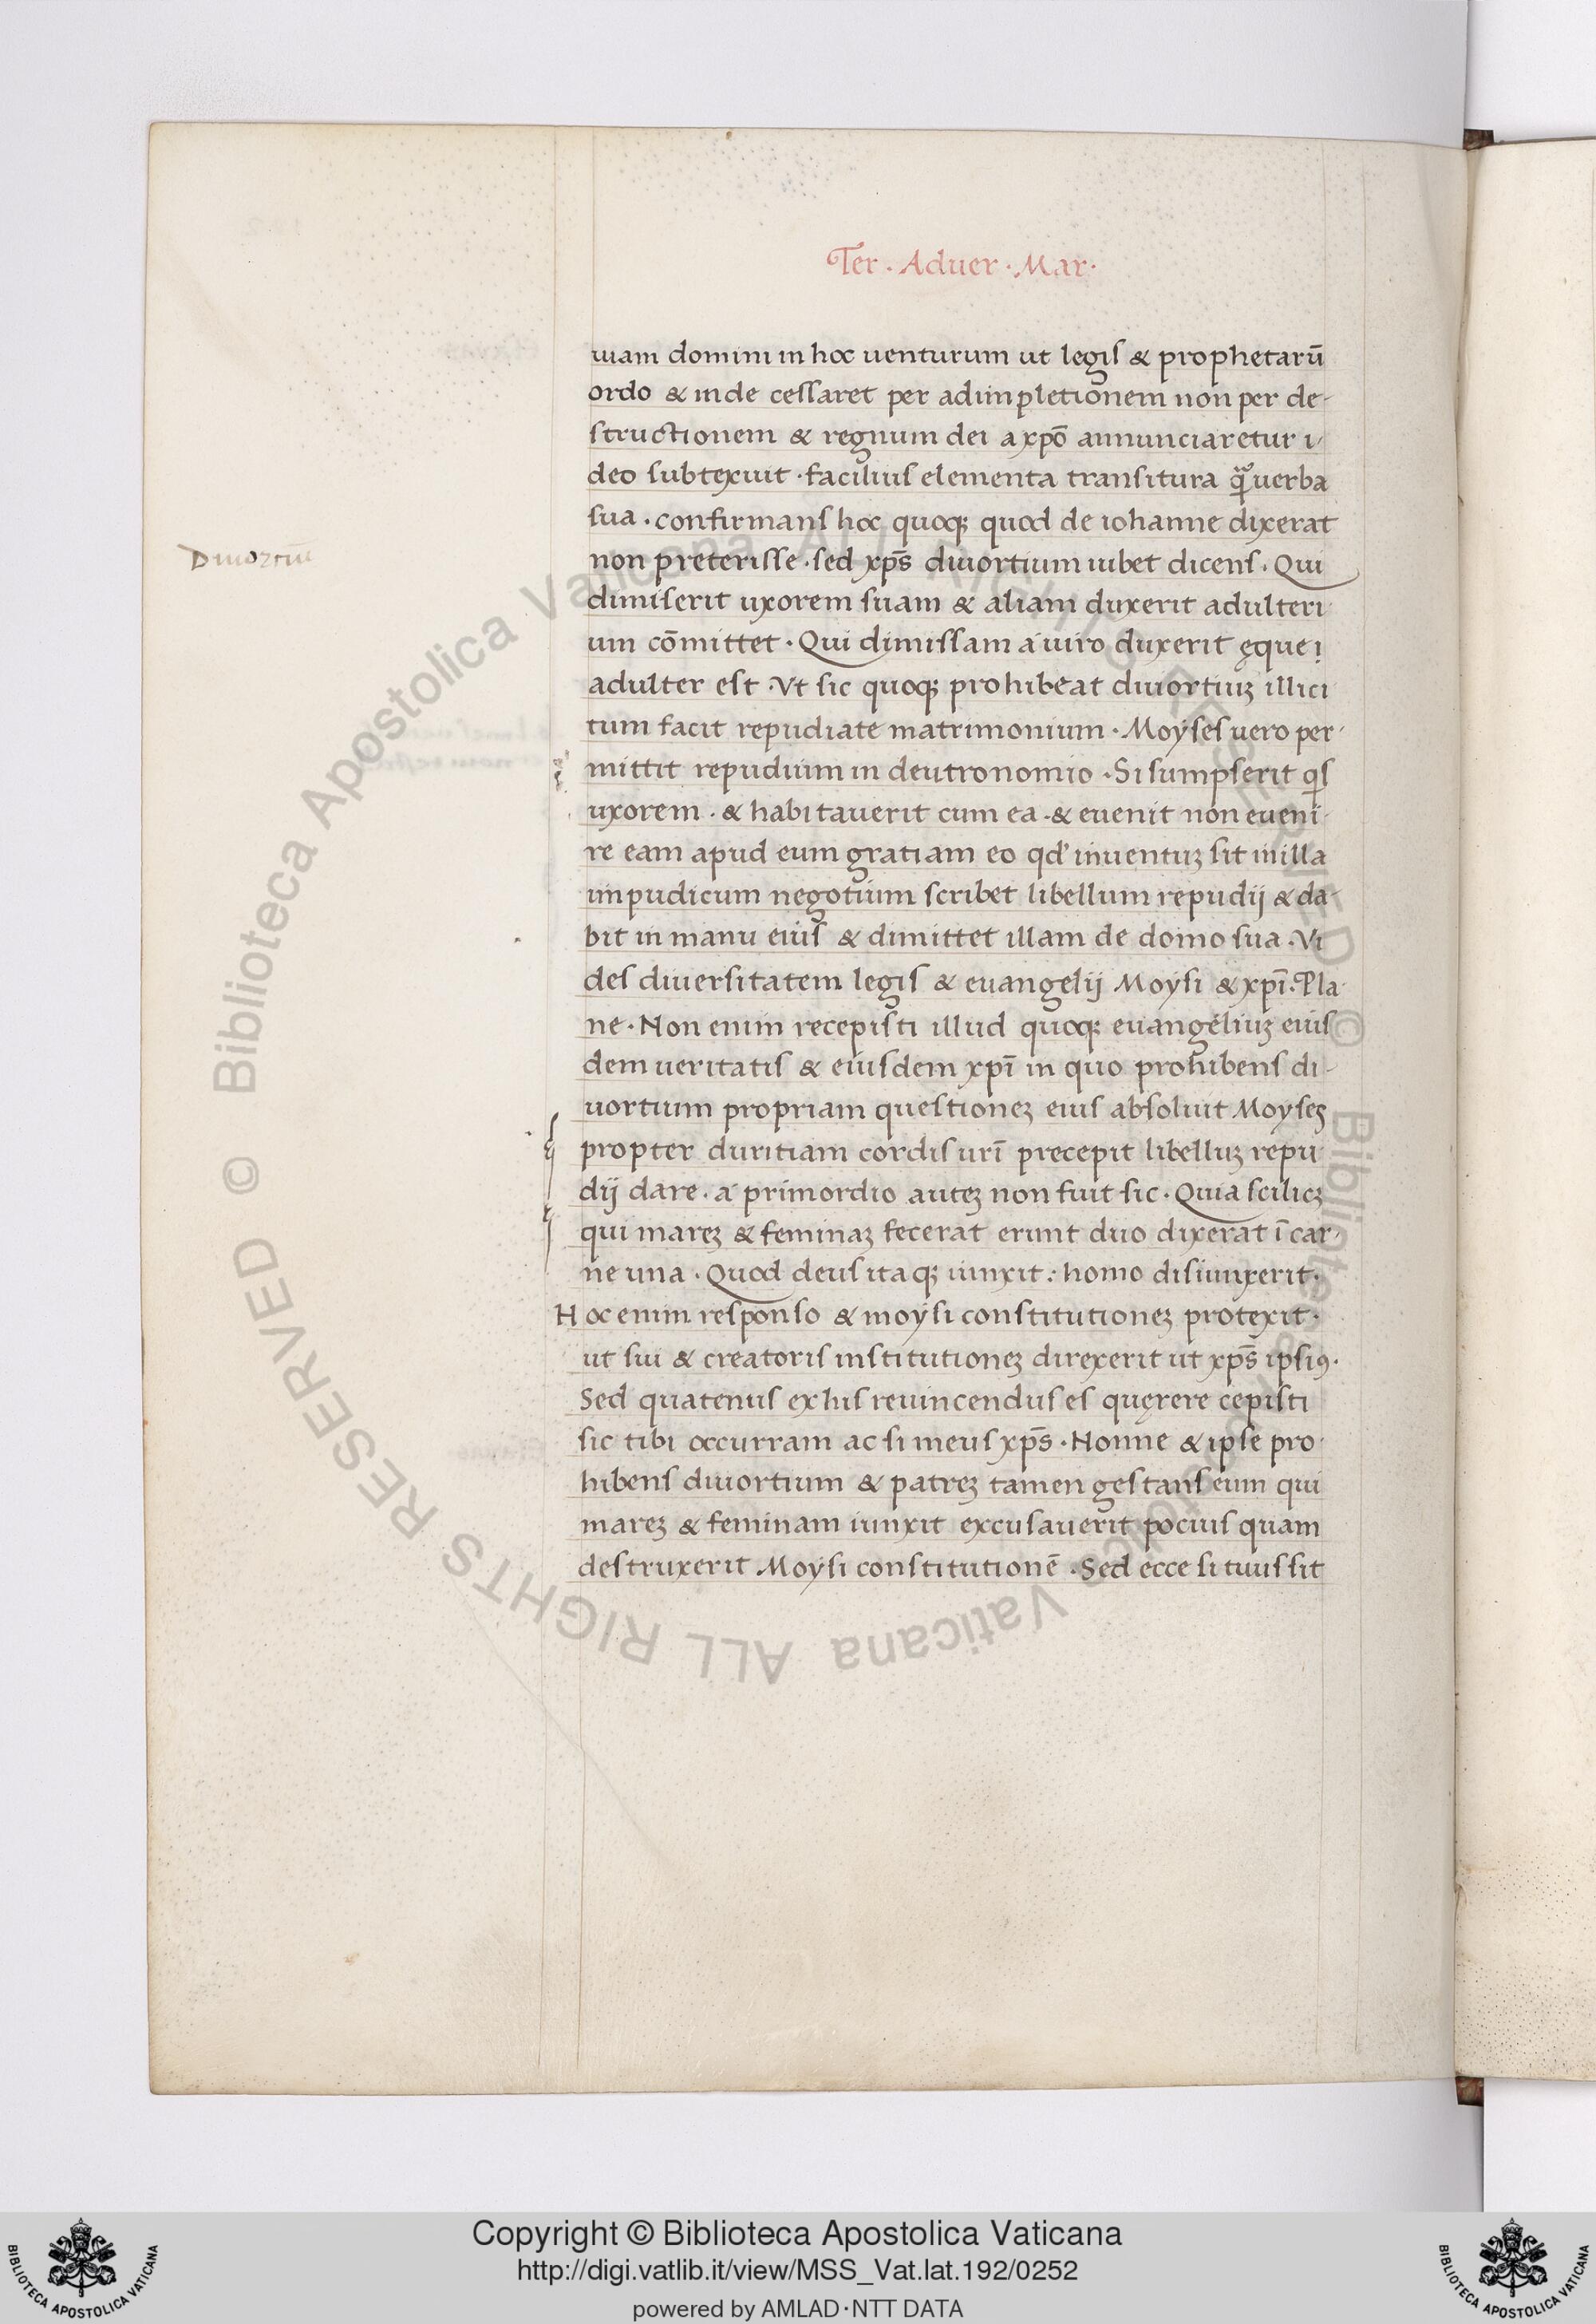 Ter · Aduer · Mar ·
uiam domini in hoc uenturum ut legis & prophetarū
ordo & inde cessaret per adimpletionem non per de-
structionem & regnum dei a xpō annunciaretur i-
deo subtexuit · facilius elementa transitura qͣ̃ uerba
sua · confirmans hoc quoqꝫ quod de iohanne dixerat
Diuorciū
non preterisse · sed xp̄s diuortium iubet dicens · Qui
dimiserit uxorem suam & aliam duxerit adulteri
um cōmittet · Qui dimissam a uiro duxerit ęque
adulter est · Vt sic quoqꝫ prohibeat diuortiuꝫ illici
tum facit repudiate matrimonium · Moyses uero per-
mittit repudium in deutronomio · Si sumpserit qs
uxorem · & habitauerit cum ea · & euenit non eueni-
re eam apud eum gratiam eo qd' inuentuꝫ sit in illa
impudicum negotium scribet libellum repudij & da-
bit in manu eius & dimittet illam de domo sua · Vi
des diuersitatem legis & euangelij Moysi & xpī · Pla-
ne · Non enim recepisti illud quoqꝫ euangeliuꝫ eius
dem ueritatis & eiusdem xpī in quo prohibens di-
uortium propriam questioneꝫ eius absoluit Moyses
propter duritiam cordis urī precepit libelluꝫ repu
dij dare · a primordio auteꝫ non fuit sic · Quia scilicꝫ
qui mareꝫ & feminaꝫ fecerat erunt duo dixerat ī car-
ne una · Quod deus itaqꝫ iunxit : homo disiunxerit ·
Hoc enim responso & moysi constitutioneꝫ protexit ·
ut sui & creatoris institutioneꝫ direxerit ut xp̄s ipsiꝯ ·
Sed quatenus ex his reuincendus es quęrere cepisti
sic tibi occurram ac si meus xp̄s · Nonne & ipse pro-
hibens diuortium & patreꝫ tamen gestans eum qui
mareꝫ & feminam iunxit excusauerit pocius quam
destruxerit Moysi constitutionē · Sed ecce si tuus sit
© Biblioteca Apostolica Vaticana ALL RIGHTS RESERVED © Biblioteca Apostolica Vaticana ALL RIGHTS RESERVED
Copyright © Biblioteca Apostolica Vaticana
http://digi.vatlib.it/view/MSS_Vat.lat.192/0252
powered by AMLAD·NTT DATA
BIBLIOTECA APOSTOLICA VATICANA
BIBLIOTECA APOSTOLICA VATICANA